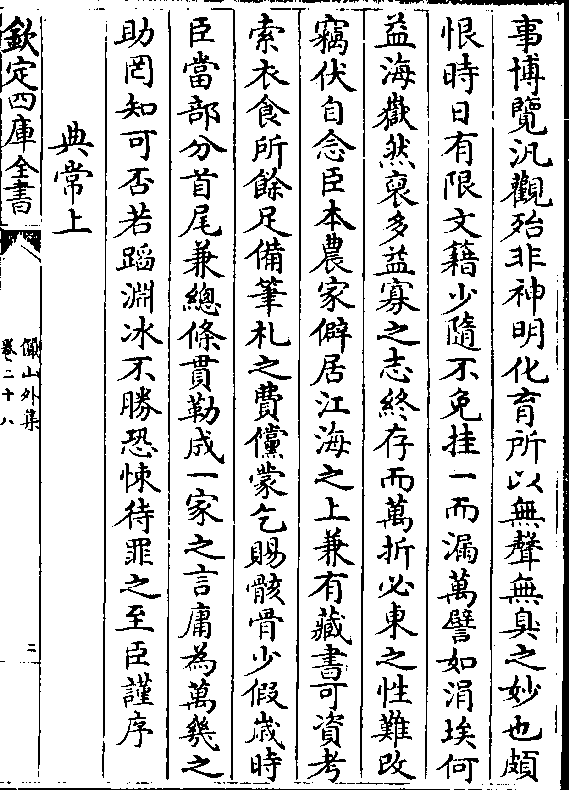 事博覽汎觀殆非神明化育所以無聲無臭之妙也頗
恨時日有限文籍少隨不免挂一而漏萬譬如涓埃何
益海嶽然裒多益寡之志終存而萬折必東之性難改
竊伏自念臣本農家僻居江海之上兼有藏書可資考
索衣食所餘足備筆札之費儻蒙乞賜骸骨少假歲時
臣當部分首尾兼總條貫勒成一家之言庸為萬幾之
助罔知可否若蹈淵冰不勝恐悚待罪之至臣謹序
典常上
欽定四庫全書
儼山外集
卷二十八
二